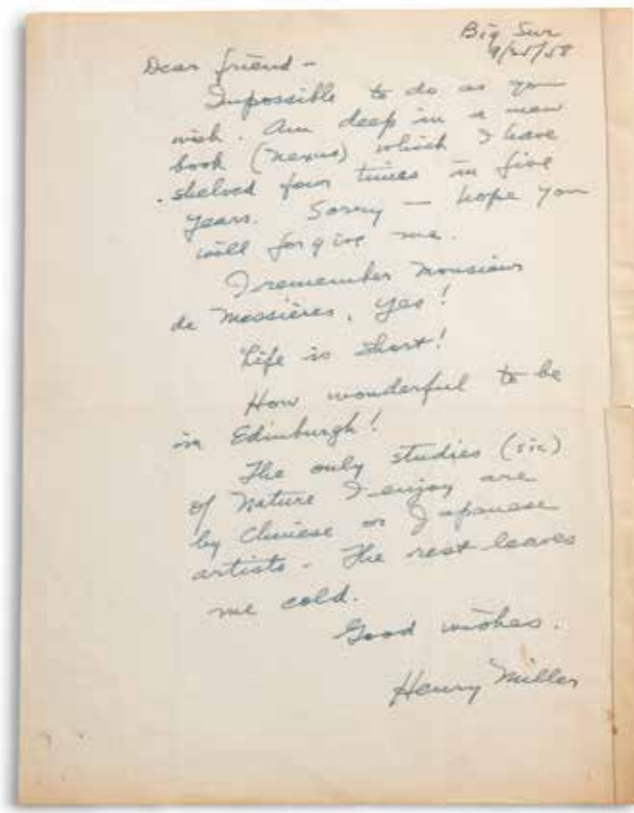 Big Sur
9/25/58
Dear friend –
Impossible to do as you
wish. Am deep in a new
book (Nexus) which I have
shelved four times in five
years. Sorry — hope you
will forgive me.
I remember Monsieur
de Messières, yes!
Life is short!
How wonderful to be
in Edinburgh!
The only studies (sic)
of Nature I enjoy are
by Chinese or Japanese
artists. The rest leaves
me cold.
Good wishes.
Henry Miller